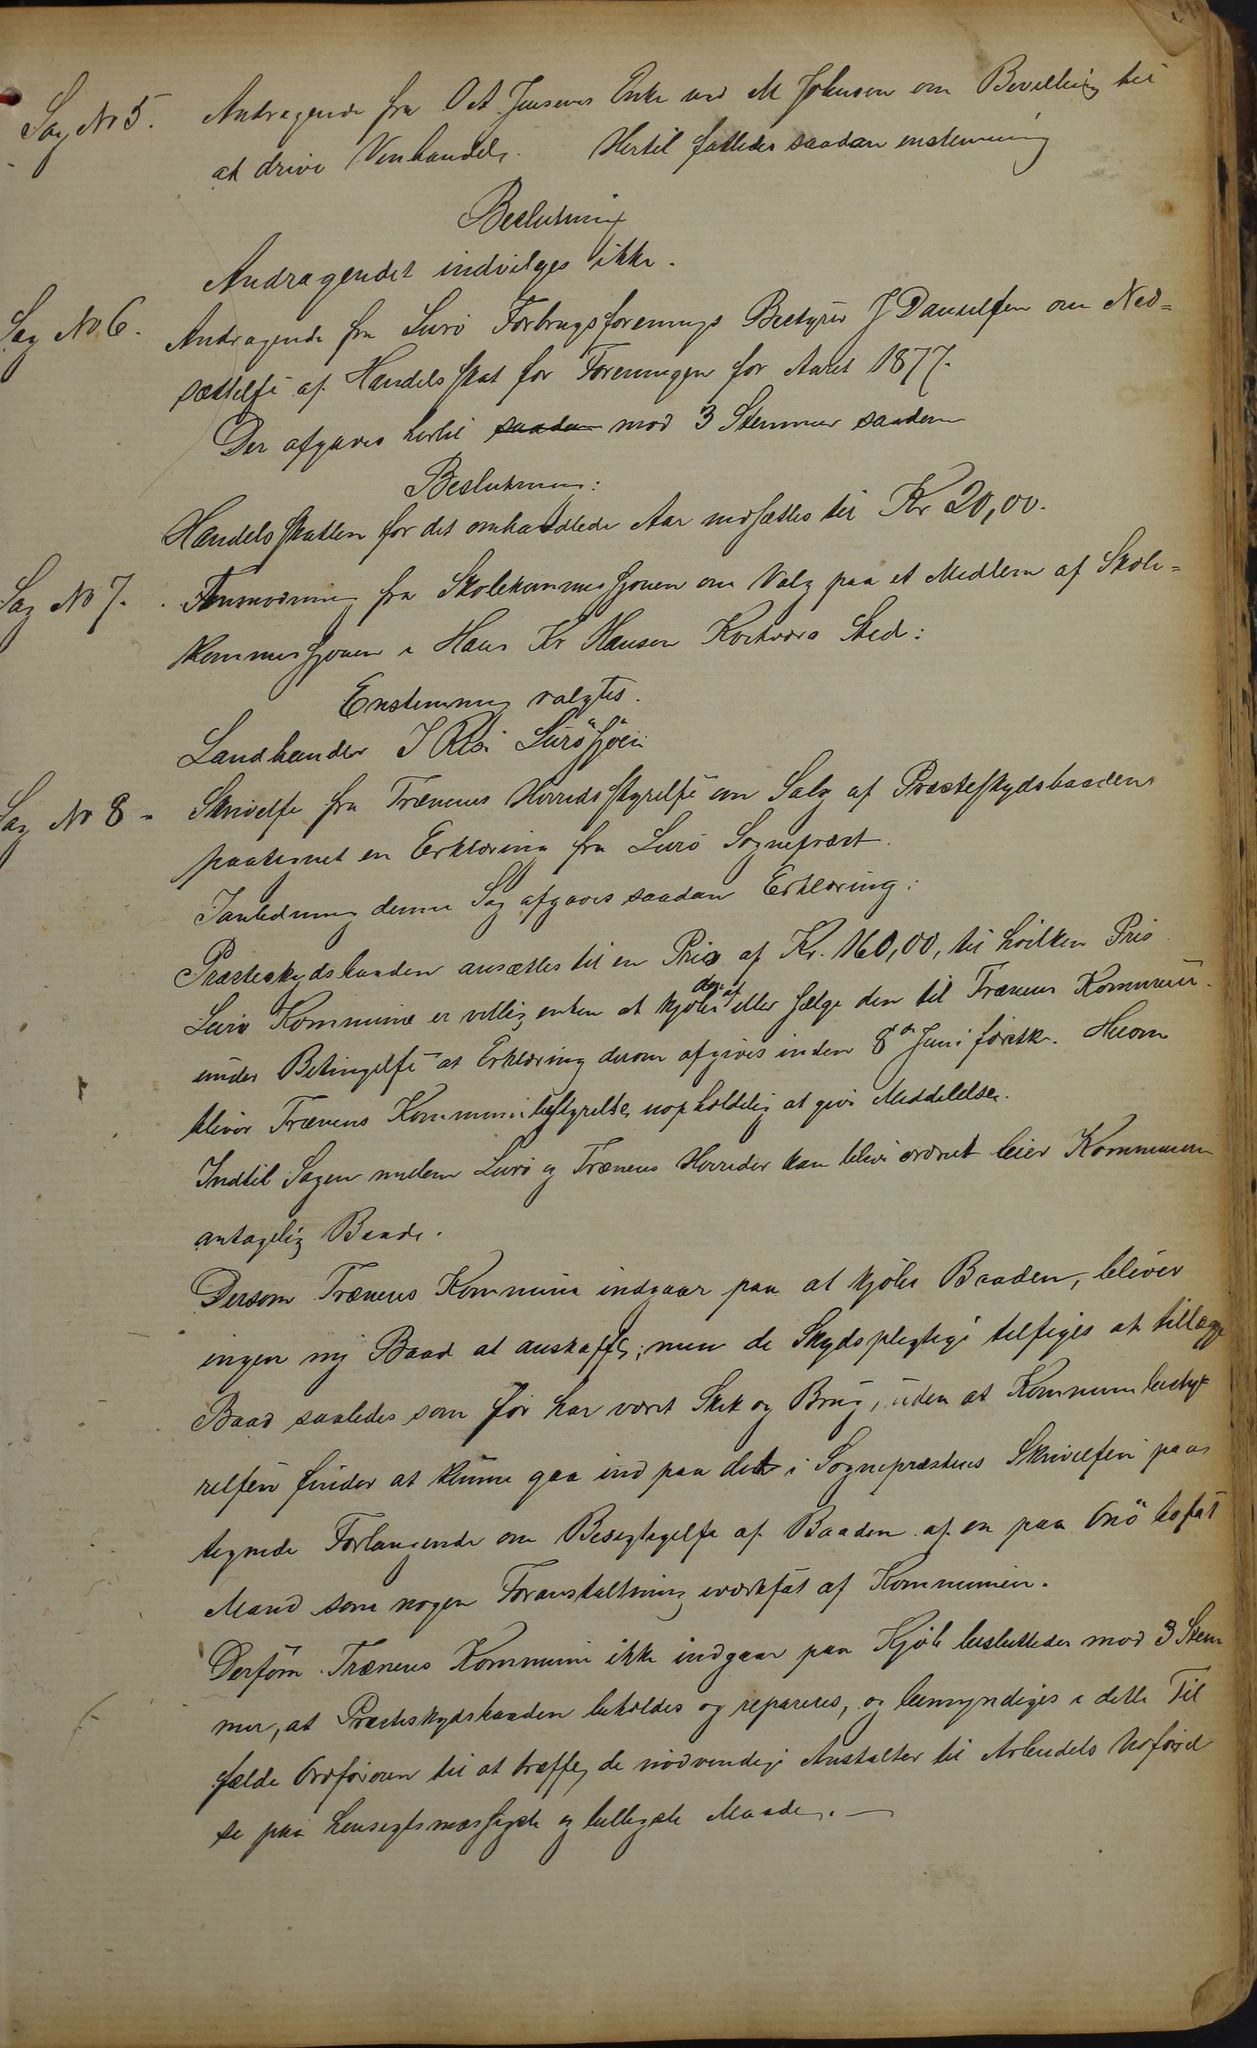 Sag No 5. Andragende fra O A Jensens Enke ved M Johnsen om Bevilling til
at drive Vinhandel. Hertil fattedes saadan enstemmig
Beslutning
Andragendet indvilges ikke.
Sag No 6. Andragende fra Lurö Forbrugsforenings Bestyrer J Danielsen om Ned=
sættelse af Handelsskat for Foreningen for Aaret 1877.
Der afgaves hertil saadan mod 3 Stemmer saadan
Beslutning:
Handelsskatten for det omhandlede Aar nedsættes til Kr 20,00.
Sag No 7. Anmodning fra Skolekommissjonen om Valg paa et Medlem af Skole=
kommissjonen i Hans Kr Hansen Kvitværs Sted:
Enstemmig valgtes.
Landhandler I Lurösjöen
Sag No 8. Skrivelse fra Trænens Herredsstyrelse om Salg af Præsteskydsbaaden
paategnet en Erklæring fra Lurö Sogneprest.
Ianledning denne Sag afgaves saadan Erklæring:
Præsteskydsbaaden ansættes til en Pris af Kr. 160,00, til hvilken Pris
Lurö Kommune er villig enten at kjöbe den eller at sælge den til Trænens Kommune
under Betingelse at Erklæring derom afgives inden 8de Juni förstk. Herom
bliver Trænens Kommunebestyrelse uopholdelig at give Meddelelse.
Indtil Sagen mellem Lurö og Trænens Herreder kan blive ordnet leier Kommunen
antagelig Baade.
Dersom Trænens Kommune indgaar paa at kjöbe Baaden, bliver
ingen ny Baad at anskaffe; men de Skydspligtige tilsiges at tillægge
Baad saaledes som för har været Skik og Brug, uden at Kommunebesty=
relsen finder at kunne gaa ind paa det i Sogneprestens Skrivelse paa=
tegnede Forlangende om Besigtigelse af Baaden af en paa Onö bosat
Mand som nogen Foranstaltning iværksat af Kommunen.
Dersom Trænens Kommune ikke indgaar paa Kjöb besluttedes mod 3 Stem
mer, at Præsteskydsbaaden beholdes og repareres, og bemyndiges i dette Til
fælde Ordföreren til at træffe de nödvendige Anstalter til Arbeidets Udförel
se paa hensigtsmæssigste og billigste Maade.